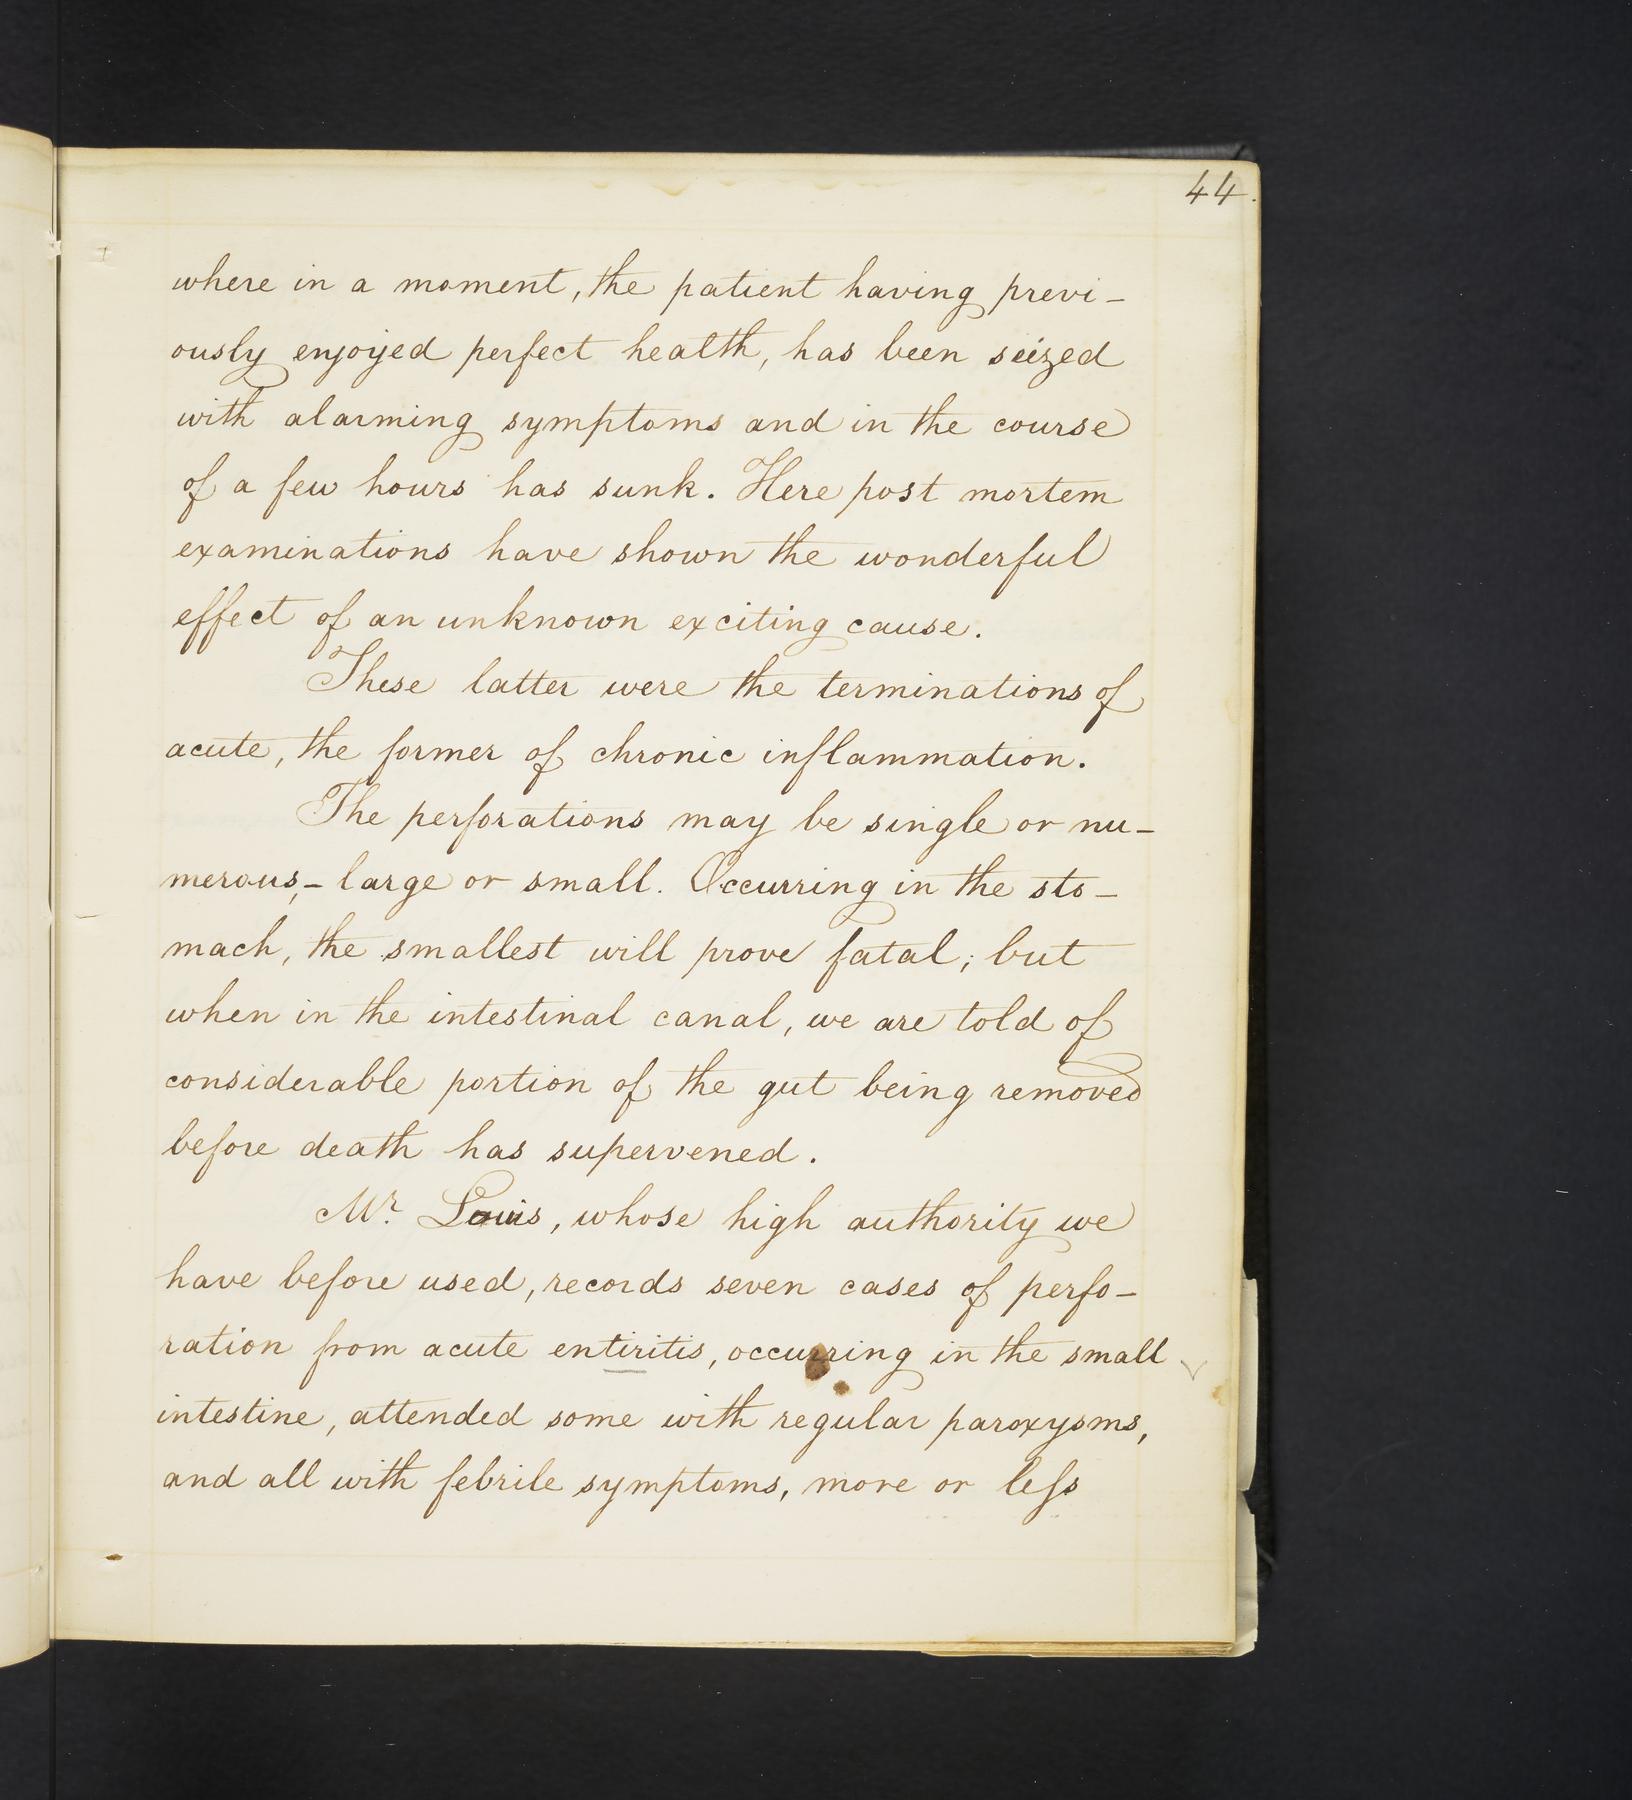 44.
where in a moment, the patient having previ-
ously enjoyed perfect health, has been seized
with alarming symptoms and in the course
of a few hours has sunk. Here post mortem
examinations have shown the wonderful
effect of an unknown exciting cause.
These latter were the terminations of
acute, the former of chronic inflammation.
The perforations may be single or nu-
merous,- large or small. Occurring in the sto-
mach, the smallest will prove fatal; but
when in the intestinal canal, we are told of
considerable portion of the gut being removed
before death has supervened.
Mr. Louis, whose high authority we
have before used, records seven cases of perfo-
ration from acute entiritis, occurring in the small
intestine, attended some with regular paroxysms,
and all with febrile symptoms, more or leſs